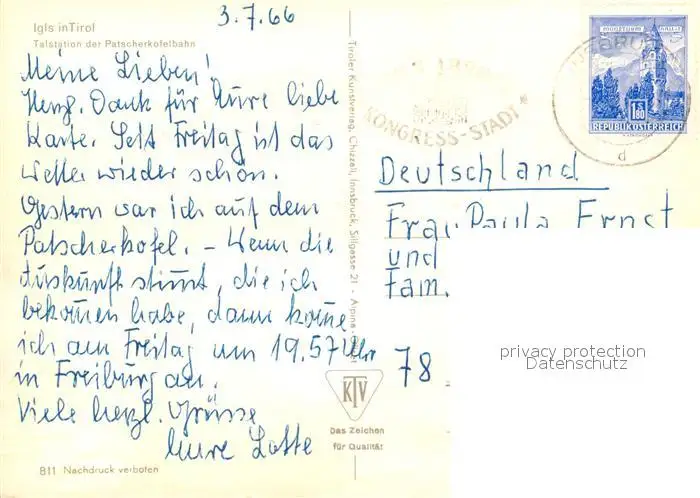 3.7.66
Igls in Tirol
Talstation der Patscherkofelbahn
Meine Lieben!
Herzl. Dank für Eure liebe
Karte. Seit Freitag ist das
Wetter wieder schön.
Gestern war ich auf dem
Patscherkofel. – Wenn die
Auskunft stimmt, die ich
bekommen habe, dann komme
ich am Freitag um 19.57 Uhr
in Freiburg an.
Viele herzl. Grüsse
Eure Lotte
811 Nachdruck verboten
Tiroler Kunstverlag, Chizzali, Innsbruck, Sillgasse 21 - Alpina
KTV
Das Zeichen
für Qualität
KONGRESS-STADT
MÜNZTURM HALL I.T.
1.80
REPUBLIK ÖSTERREICH
d
Deutschland
Paula Ernst
und
Fam.
78
privacy protection
Datenschutz